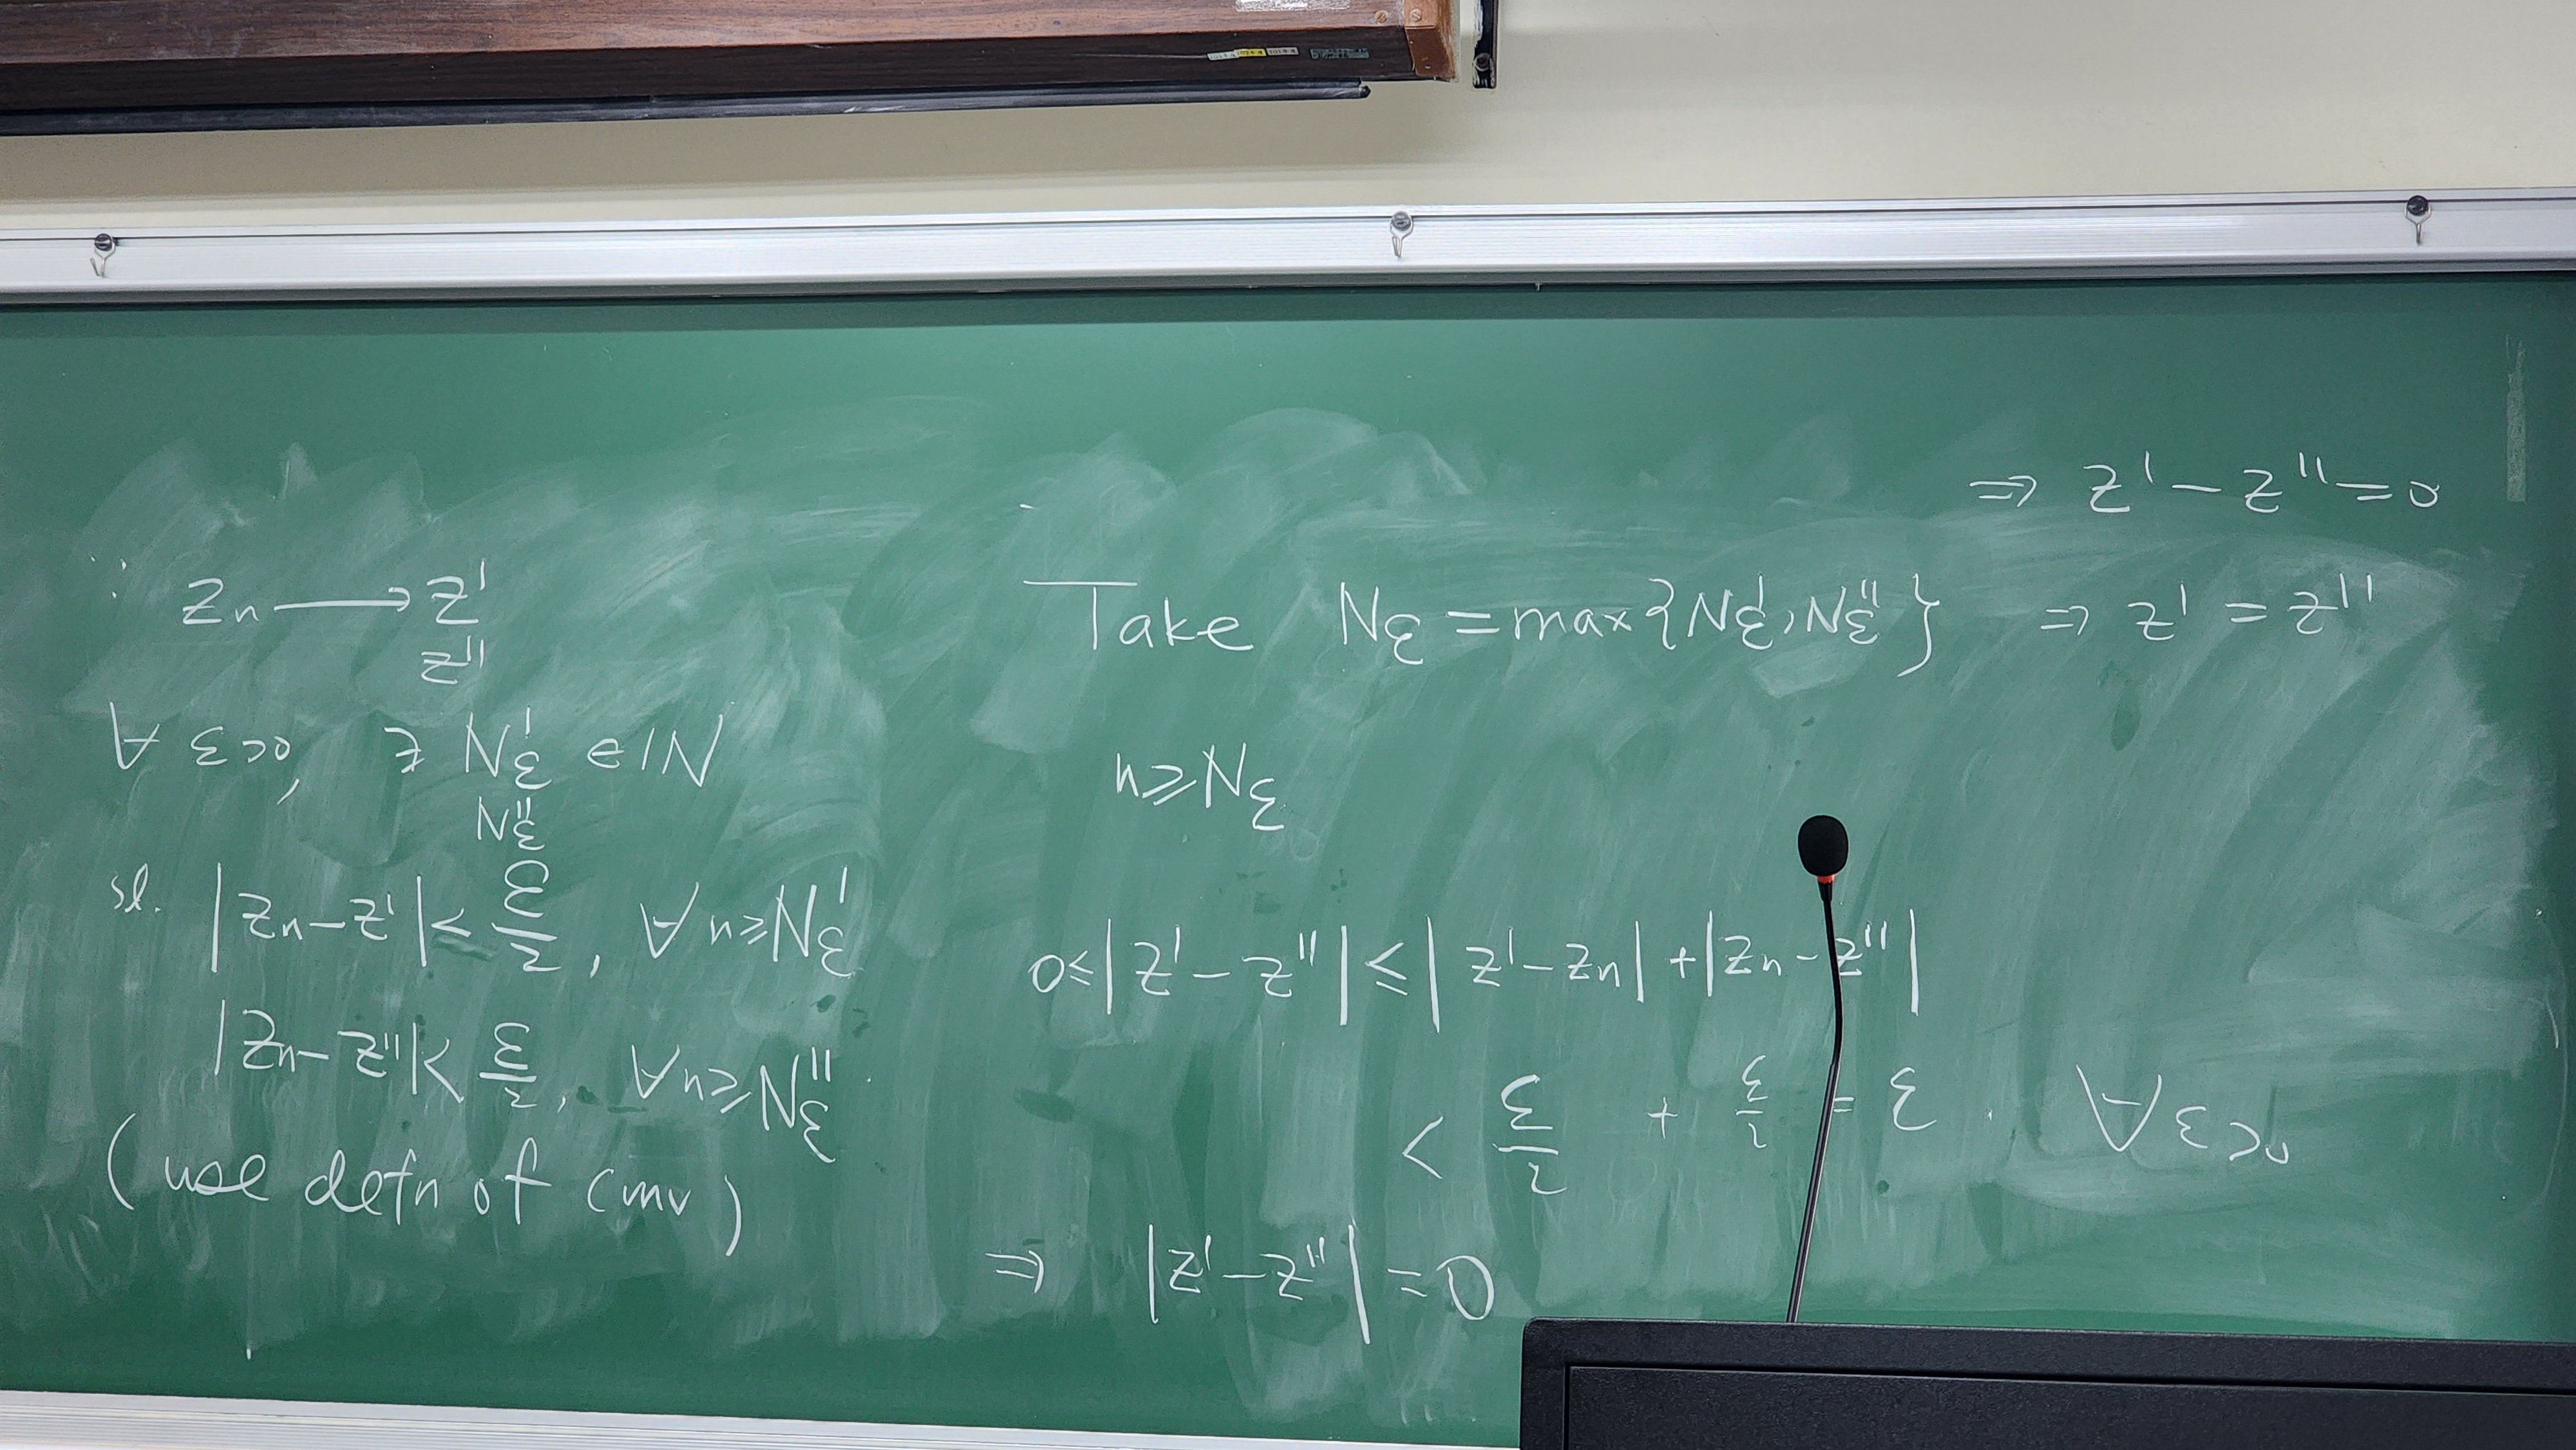 ∵ Zn ⟶ Z'
Z''
∀ ε>0, ∃ N'ε ∈ ℕ
N''ε
st. |Zn-Z'| < ε/2, ∀n≥N'ε
|Zn-Z''| < ε/2, ∀n≥N''ε.
(use defn of conv)
Take Nε = max{N'ε, N''ε}
n≥Nε
0≤|Z'-Z''| ≤ |Z'-Zn| + |Zn-Z''|
< ε/2 + ε/2 = ε. ∀ε>0
⇒ |Z'-Z''| = 0
⇒ Z'-Z''=0
⇒ Z' = Z''